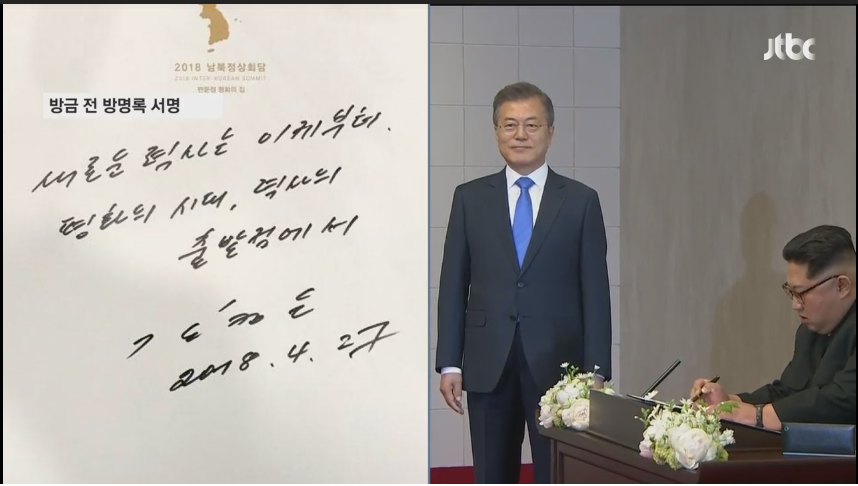 2018 남북정상회담
2018 INTER-KOREAN SUMMIT
판문점 평화의 집
방금 전 방명록 서명
새로운 력사는 이제부터.
평화의 시대, 력사의
출발점에서
김정은
2018. 4. 27
jtbc